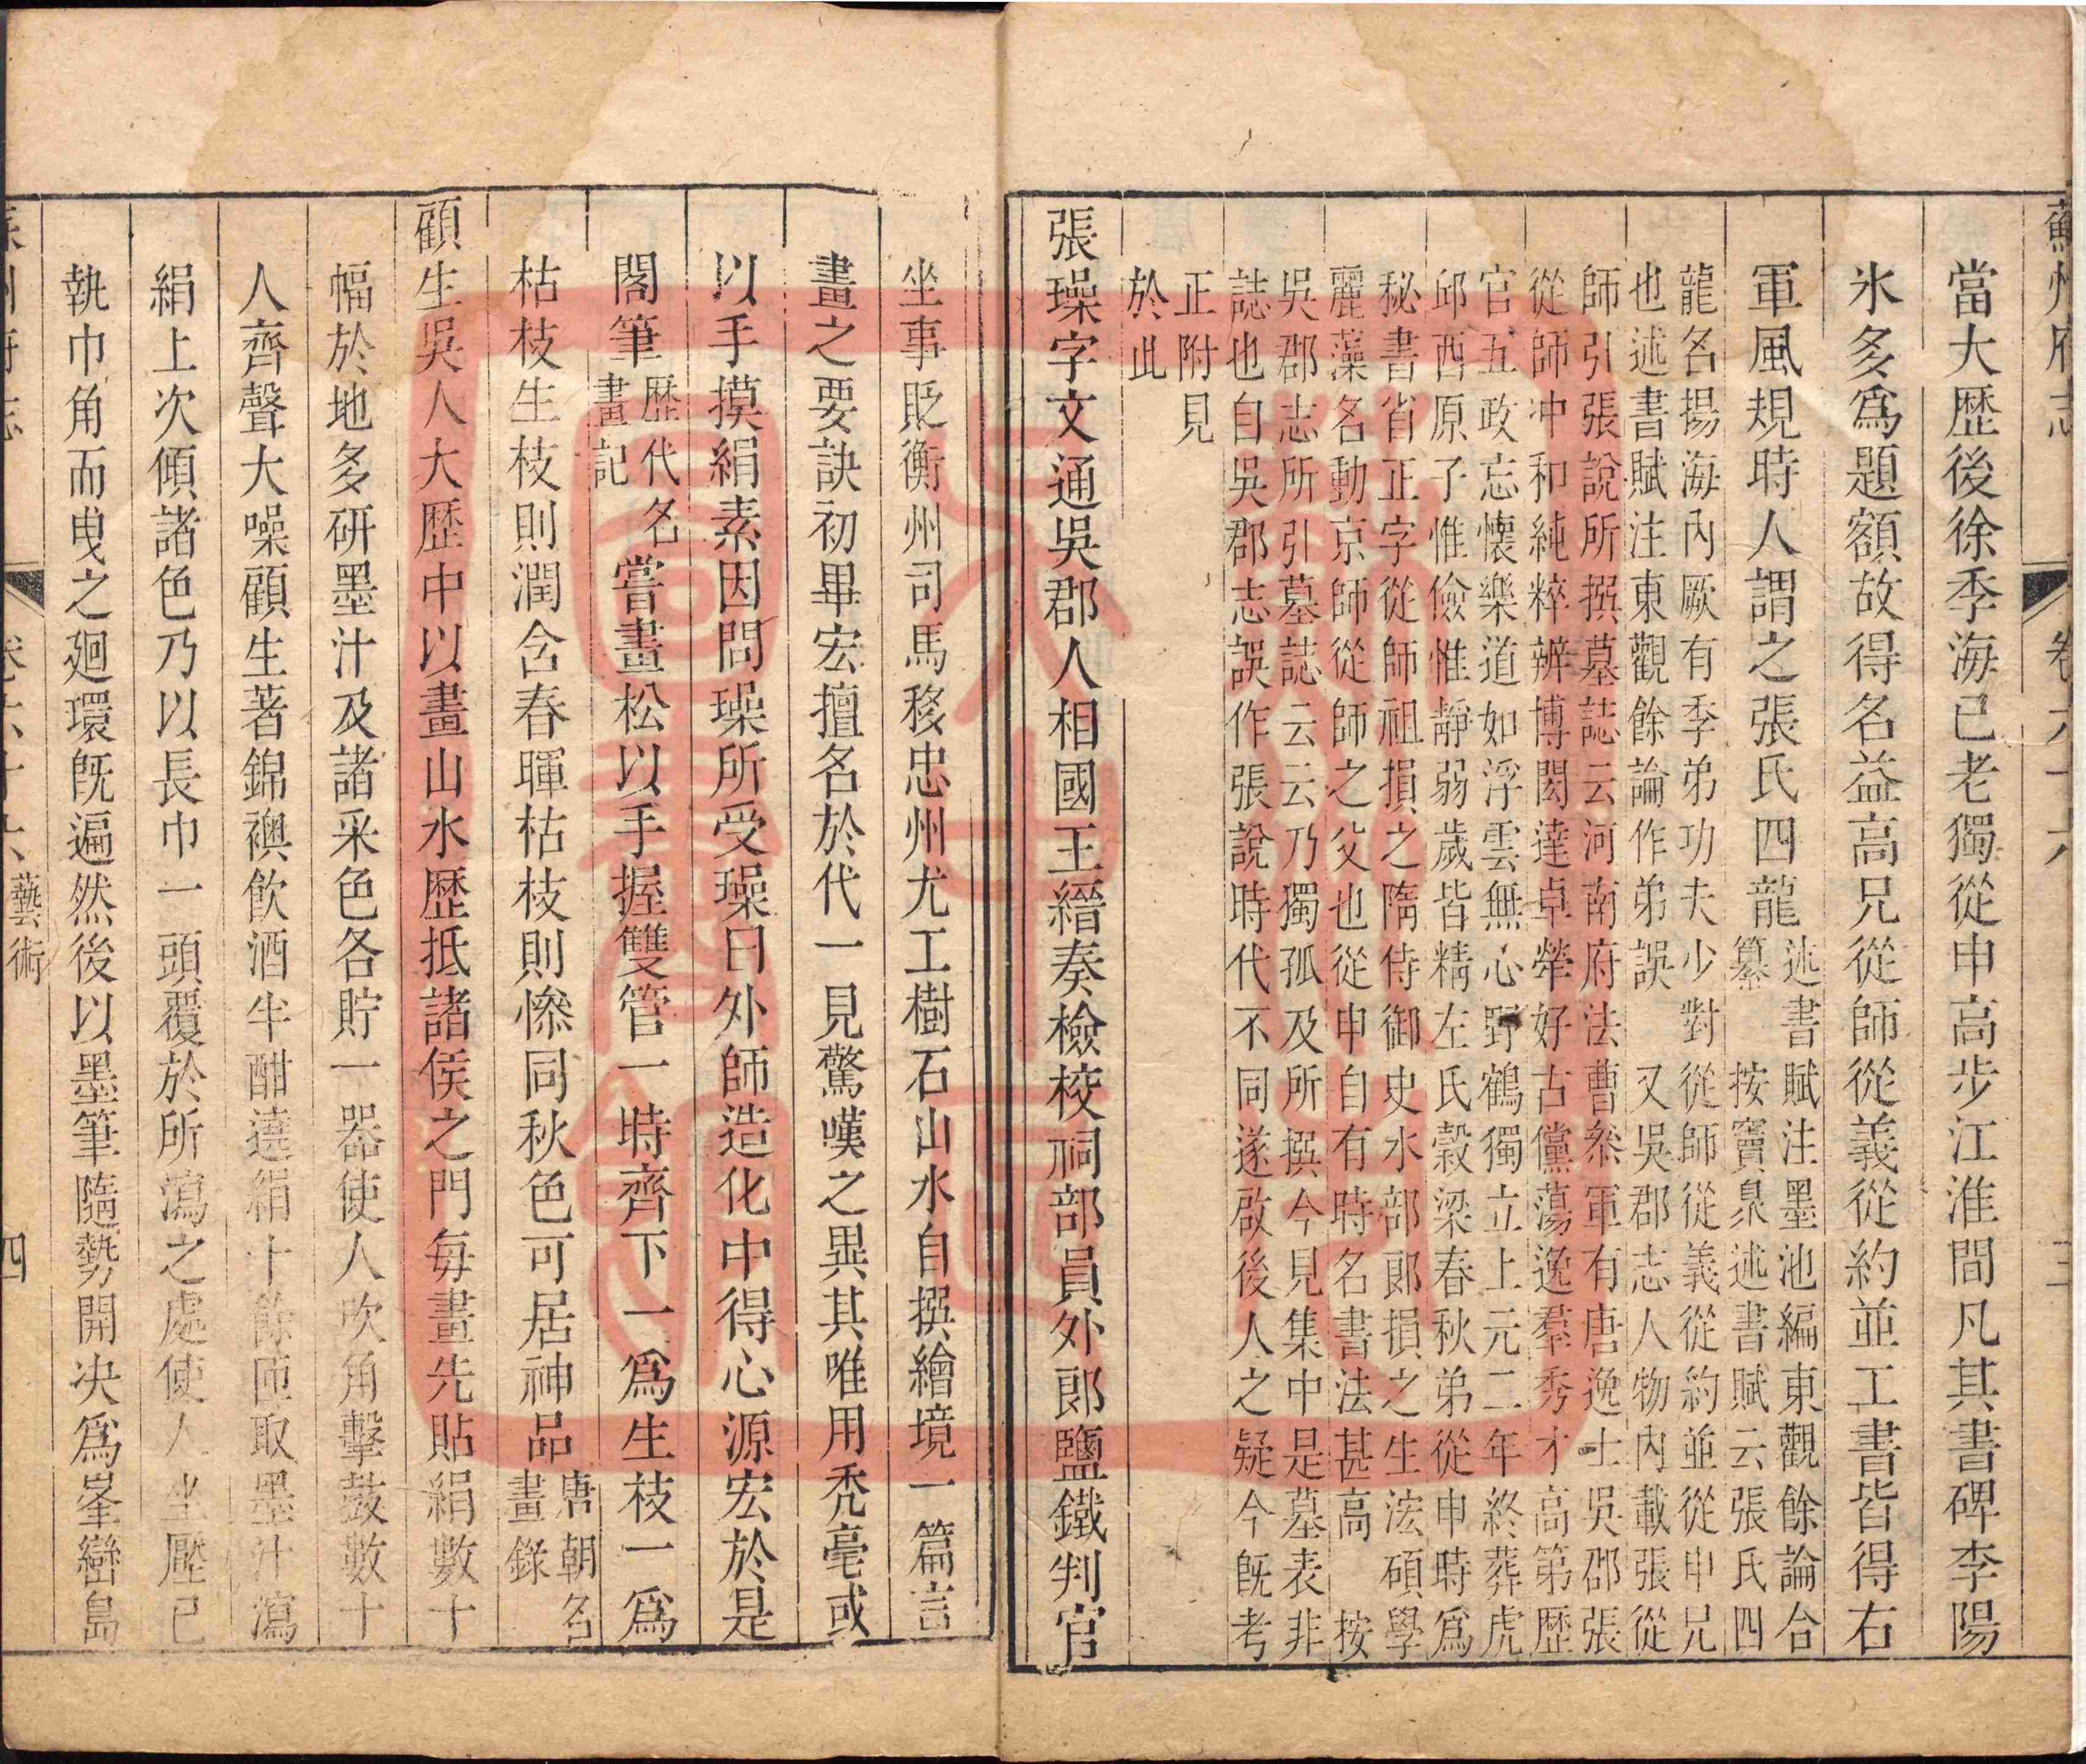 蘇州府志 卷六十六 三
當大歷後徐季海已老獨從申高步江淮間凡其書碑李陽
氷多爲題額故得名益高兄從師從義從約並工書皆得右
軍風規時人謂之張氏四龍述書賦注墨池編東觀餘論合
纂 按竇臮述書賦云張氏四
龍名揚海內厥有季弟功夫少對從師從義從約並從申兄
也述書賦注東觀餘論作弟誤 又吳郡志人物內載張從
師引張說所撰墓誌云河南府法曹叅軍有唐逸士吳郡張
從師冲和純粹辨博閎達卓犖好古儻蕩逸羣秀才高第歷
官五政忘懷樂道如浮雲無心野鶴獨立上元二年終葬虎
邱西原子惟儉惟靜弱歲皆精左氏穀梁春秋弟從申時爲
秘書省正字從師祖損之隋侍御史水部郎損之生浤碩學
麗藻名動京師從師之父也從申自有時名書法甚高 按
吳郡志所引墓誌云云乃獨孤及所撰今見集中是墓表非
誌也自吳郡志誤作張說時代不同遂啟後人之疑今旣考
正附見
於此
張璪字文通吳郡人相國王縉奏檢校祠部員外郎鹽鐵判官
坐事貶衡州司馬移忠州尤工樹石山水自撰繪境一篇言
畫之要訣初畢宏擅名於代一見驚嘆之異其唯用禿毫或
以手摸絹素因問璪所受璪曰外師造化中得心源宏於是
閣筆歷代名
畫記
嘗畫松以手握雙管一時齊下一爲生枝一爲
枯枝生枝則潤含春暉枯枝則慘同秋色可居神品唐朝名
畫錄
顧生吳人大歷中以畫山水歷抵諸侯之門每畫先貼絹數十
幅於地多研墨汁及諸采色各貯一器使人吹角擊鼓數十
人齊聲大噪顧生著錦襖飲酒半酣遶絹十餘匝取墨汁瀉
絹上次傾諸色乃以長巾一頭覆於所瀉之處使人坐壓己
執巾角而曳之廻環旣遍然後以墨筆隨勢開决爲峯巒島
蘇州府志 卷六十六 藝術 四